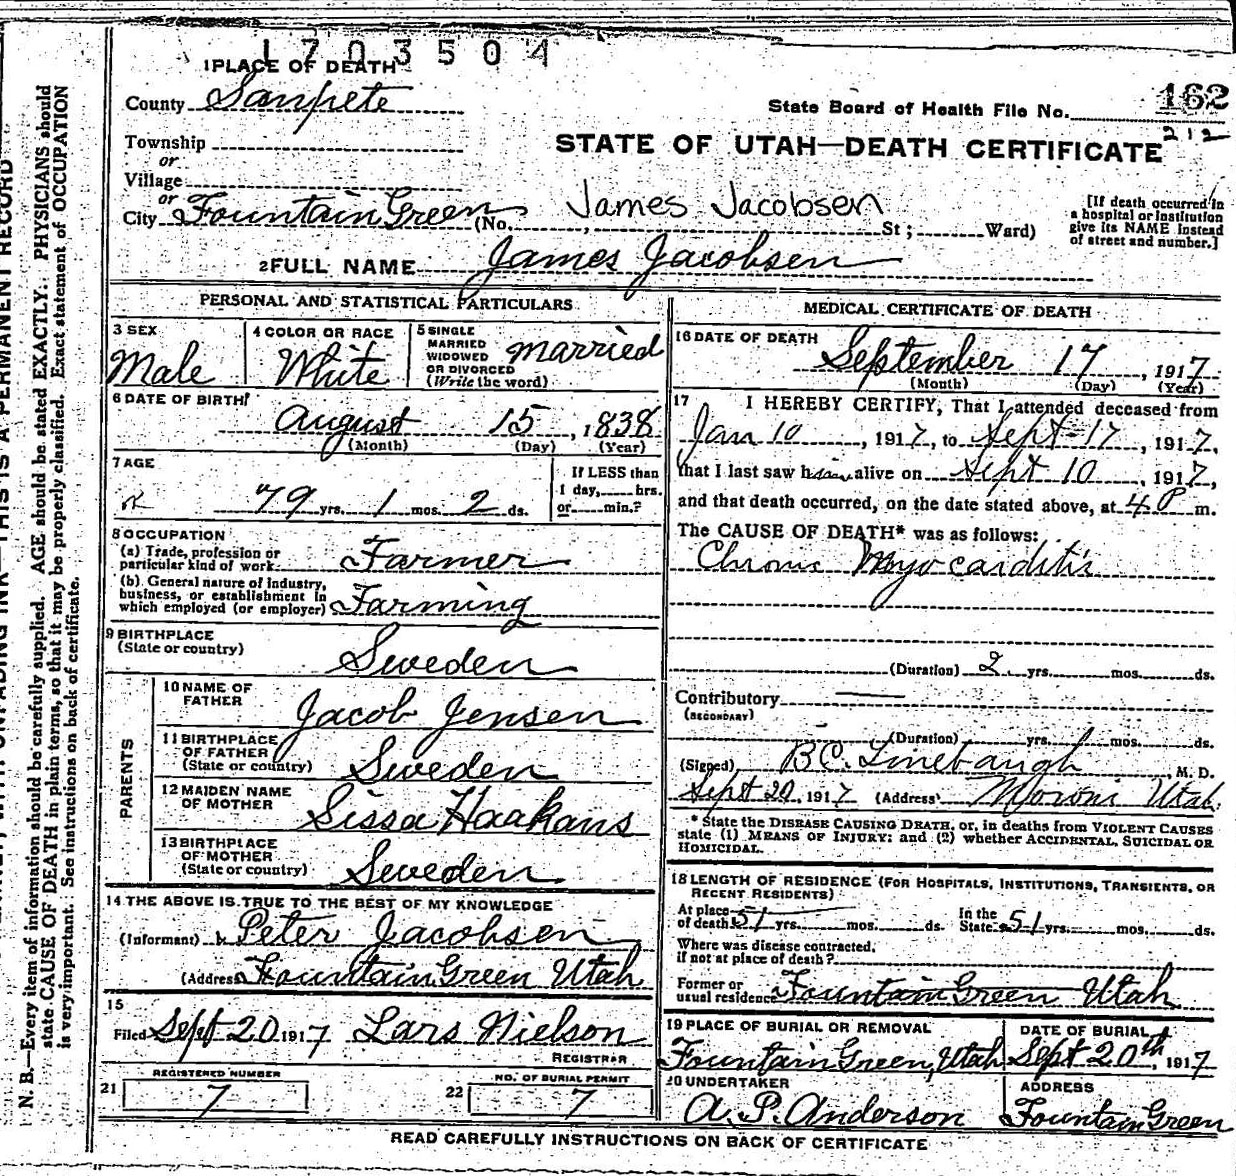 1703504
1 PLACE OF DEATH
County Sanpete
State Board of Health File No. 162
212
Township
or
STATE OF UTAH—DEATH CERTIFICATE
Village
or
City Fountain Green (No. James Jacobsen St; Ward)
[If death occurred in
a hospital or institution
give its NAME instead
of street and number.]
2 FULL NAME James Jacobsen
PERSONAL AND STATISTICAL PARTICULARS
3 SEX
Male
4 COLOR OR RACE
White
5 SINGLE
MARRIED
WIDOWED
OR DIVORCED
(Write the word)
married
6 DATE OF BIRTH
August 15, 1838
(Month) (Day) (Year)
7 AGE
79 yrs. 1 mos. 2 ds.
If LESS than
1 day, hrs.
or min.?
8 OCCUPATION
(a) Trade, profession or
particular kind of work Farmer
(b) General nature of industry,
business, or establishment in
which employed (or employer) Farming
9 BIRTHPLACE
(State or country)
Sweden
PARENTS
10 NAME OF
FATHER
Jacob Jensen
11 BIRTHPLACE
OF FATHER
(State or country) Sweden
12 MAIDEN NAME
OF MOTHER
Sissa Haakans
13 BIRTHPLACE
OF MOTHER
(State or country) Sweden
14 THE ABOVE IS TRUE TO THE BEST OF MY KNOWLEDGE
(Informant) Peter Jacobsen
(Address Fountain Green Utah
15
Filed Sept 20 1917 Lars Nielson
REGISTRAR
21 REGISTERED NUMBER
7
22 NO. OF BURIAL PERMIT
7
MEDICAL CERTIFICATE OF DEATH
16 DATE OF DEATH
September 17, 1917
(Month) (Day) (Year)
17 I HEREBY CERTIFY, That I attended deceased from
Jan 10, 1917, to Sept-17, 1917,
that I last saw him alive on Sept 10, 1917,
and that death occurred, on the date stated above, at 4 P m.
The CAUSE OF DEATH* was as follows:
Chronic Myocarditis
(Duration) 2 yrs. mos. ds.
Contributory
(SECONDARY)
(Duration) yrs. mos. ds.
(Signed) B.C. Linebaugh, M. D.
Sept 20, 1917 (Address) Moroni Utah.
* State the DISEASE CAUSING DEATH, or, in deaths from VIOLENT CAUSES
state (1) MEANS OF INJURY; and (2) whether ACCIDENTAL, SUICIDAL OR
HOMICIDAL.
18 LENGTH OF RESIDENCE (FOR HOSPITALS, INSTITUTIONS, TRANSIENTS, OR
RECENT RESIDENTS)
At place
of death 51 yrs. mos. ds.
In the
State 51 yrs. mos. ds.
Where was disease contracted,
if not at place of death?
Former or
usual residence Fountain Green Utah
19 PLACE OF BURIAL OR REMOVAL
Fountain Green, Utah
DATE OF BURIAL
Sept 20th, 1917
20 UNDERTAKER
A. P. Anderson
ADDRESS
Fountain Green
READ CAREFULLY INSTRUCTIONS ON BACK OF CERTIFICATE
N. B.—Every item of information should be carefully supplied. AGE should be stated EXACTLY. PHYSICIANS should
state CAUSE OF DEATH in plain terms, so that it may be properly classified. Exact statement of OCCUPATION
is very important. See instructions on back of certificate.
THIS IS A PERMANENT RECORD